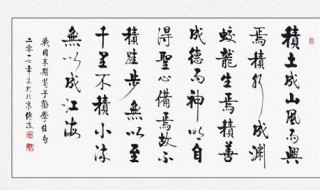 積土成山風雨興
焉積水成淵
蛟龍生焉積善
成德而神明自
得聖心備焉故不
積跬步無以至
千里不積小流
無以成江海
戰國末期荀子勸學佳句
二零一七年於北京